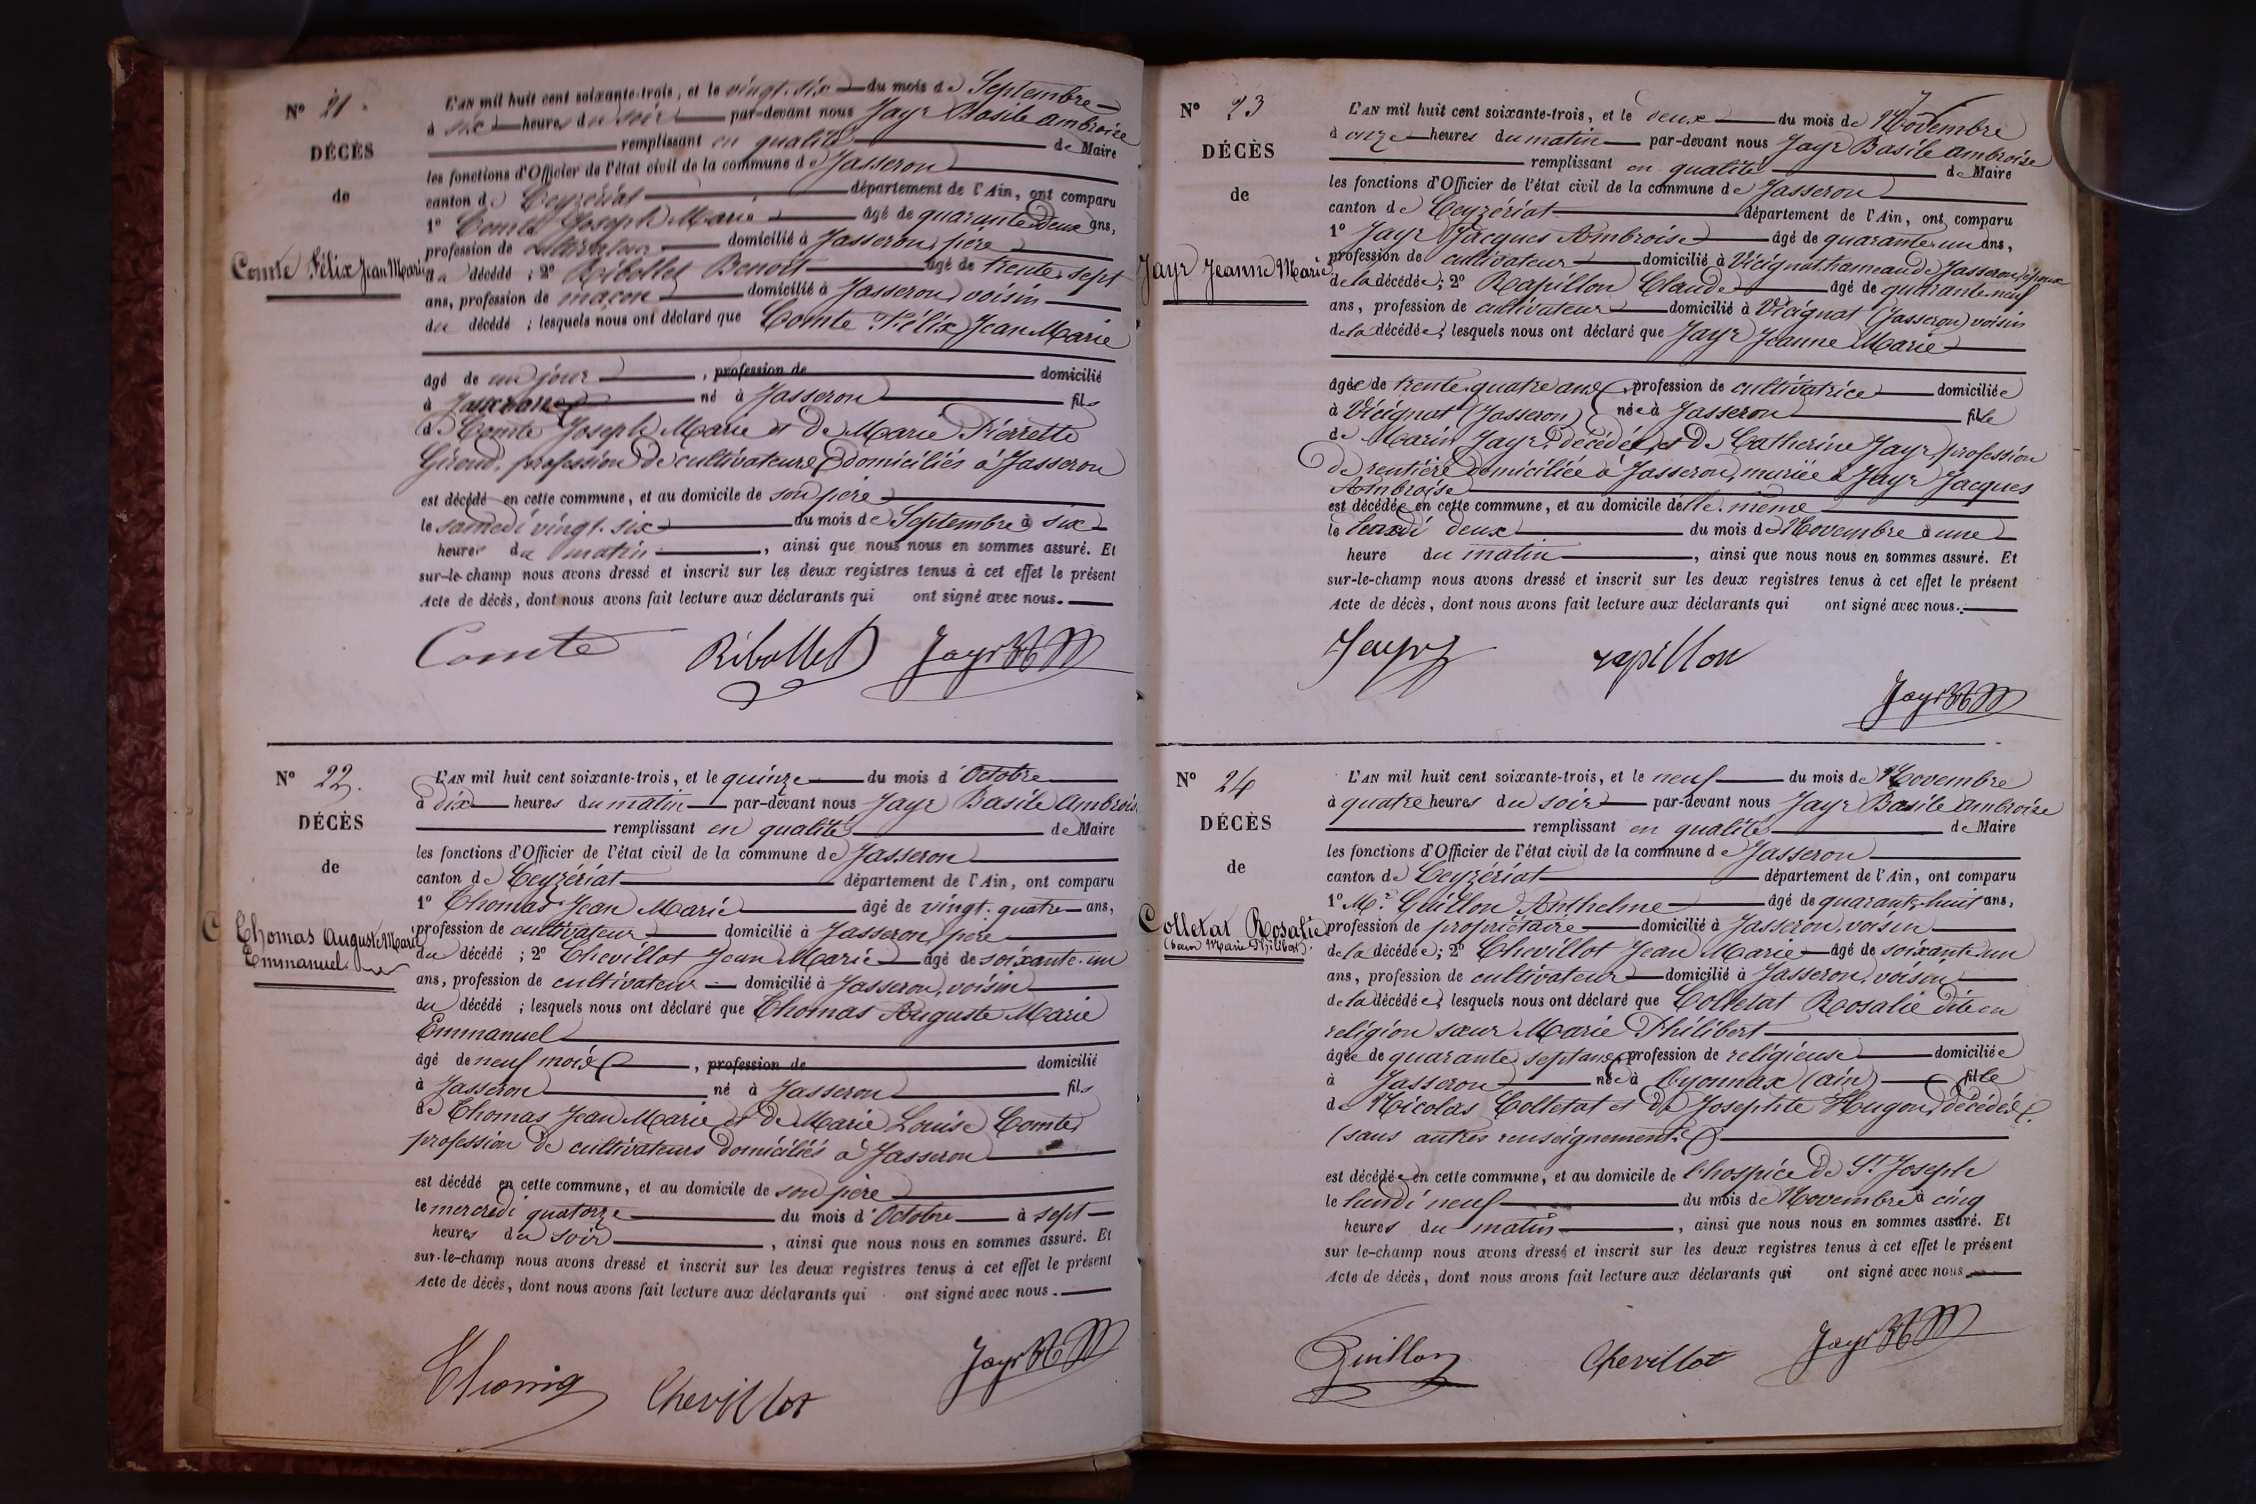 N° 21.
DÉCÈS
de
Comte Félix Jean Marie
L'AN mil huit cent soixante-trois, et le vingt-six du mois de Septembre
à six heures du soir par-devant nous Jayr Basile Ambroise
remplissant en qualité de Maire
les fonctions d'Officier de l'état civil de la commune de Jasseron
canton de Ceyzériat département de l'Ain, ont comparu
1° Comte Joseph Marie âgé de quarante deux ans,
profession de cultivateur domicilié à Jasseron, père
du décédé ; 2° Ribollet Benoit âgé de trente-sept
ans, profession de maçon domicilié à Jasseron, voisin
du décédé ; lesquels nous ont déclaré que Comte Félix Jean Marie
âgé de un jour, profession de domicilié
à Jasseron né à Jasseron fils
de Comte Joseph Marie et de Marie Pierrette
Giroud, profession de cultivateurs domiciliés à Jasseron
est décédé en cette commune, et au domicile de son père
le samedi vingt-six du mois de Septembre à six
heures du matin, ainsi que nous nous en sommes assuré. Et
sur-le-champ nous avons dressé et inscrit sur les deux registres tenus à cet effet le présent
Acte de décès, dont nous avons fait lecture aux déclarants qui ont signé avec nous.
Comte Ribollet Jayr
N° 22.
DÉCÈS
de
Thomas Auguste Marie
Emmanuel
L'AN mil huit cent soixante-trois, et le quinze du mois d'Octobre
à dix heures du matin par-devant nous Jayr Basile Ambroise
remplissant en qualité de Maire
les fonctions d'Officier de l'état civil de la commune de Jasseron
canton de Ceyzériat département de l'Ain, ont comparu
1° Thomas Jean Marie âgé de vingt-quatre ans,
profession de cultivateur domicilié à Jasseron, père
du décédé ; 2° Chevillot Jean Marie âgé de soixante-un
ans, profession de cultivateur domicilié à Jasseron, voisin
du décédé ; lesquels nous ont déclaré que Thomas Auguste Marie
Emmanuel
âgé de neuf mois, profession de domicilié
à Jasseron né à Jasseron fils
de Thomas Jean Marie et de Marie Louise Comte
profession de cultivateurs domiciliés à Jasseron
est décédé en cette commune, et au domicile de son père
le mercredi quatorze du mois d'Octobre à sept
heures du soir, ainsi que nous nous en sommes assuré. Et
sur-le-champ nous avons dressé et inscrit sur les deux registres tenus à cet effet le présent
Acte de décès, dont nous avons fait lecture aux déclarants qui ont signé avec nous.
Thomas Chevillot Jayr
N° 23
DÉCÈS
de
Jayr Jeanne Marie
L'AN mil huit cent soixante-trois, et le deux du mois de Novembre
à onze heures du matin par-devant nous Jayr Basile Ambroise
remplissant en qualité de Maire
les fonctions d'Officier de l'état civil de la commune de Jasseron
canton de Ceyzériat département de l'Ain, ont comparu
1° Jayr Jacques Ambroise âgé de quarante-un ans,
profession de cultivateur domicilié à Vicignat, hameau de Jasseron, époux
de la décédée ; 2° Rapillon Claude âgé de quarante-neuf
ans, profession de cultivateur domicilié à Vicignat (Jasseron) voisin
de la décédée, lesquels nous ont déclaré que Jayr Jeanne Marie
âgée de trente-quatre ans, profession de cultivatrice domiciliée
à Vicignat (Jasseron) née à Jasseron fille
de Marin Jayr, décédé, et de Catherine Jayr, profession
de rentière domiciliée à Jasseron, mariée à Jayr Jacques
Ambroise
est décédée en cette commune, et au domicile d'elle-même
le lundi deux du mois de Novembre à une
heure du matin, ainsi que nous nous en sommes assuré. Et
sur-le-champ nous avons dressé et inscrit sur les deux registres tenus à cet effet le présent
Acte de décès, dont nous avons fait lecture aux déclarants qui ont signé avec nous.
Jayr rapillon
Jayr
N° 24
DÉCÈS
de
Colletat Rosalie
(sœur Marie Philibert).
L'AN mil huit cent soixante-trois, et le neuf du mois de Novembre
à quatre heures du soir par-devant nous Jayr Basile Ambroise
remplissant en qualité de Maire
les fonctions d'Officier de l'état civil de la commune de Jasseron
canton de Ceyzériat département de l'Ain, ont comparu
1° Mr Guillon Anthelme âgé de quarante-huit ans,
profession de propriétaire domicilié à Jasseron, voisin
de la décédée ; 2° Chevillot Jean Marie âgé de soixante-un
ans, profession de cultivateur domicilié à Jasseron, voisin
de la décédée, lesquels nous ont déclaré que Colletat Rosalie dite en
religion sœur Marie Philibert
âgée de quarante-sept ans, profession de religieuse domiciliée
à Jasseron née à Oyonnax (ain) fille
de Nicolas Colletat et de Josephte Hugon, décédés.
(sans autres renseignements)
est décédée en cette commune, et au domicile de l'hospice de St Joseph
le lundi neuf du mois de Novembre à cinq
heures du matin, ainsi que nous nous en sommes assuré. Et
sur le-champ nous avons dressé et inscrit sur les deux registres tenus à cet effet le présent
Acte de décès, dont nous avons fait lecture aux déclarants qui ont signé avec nous
Guillon Chevillot Jayr